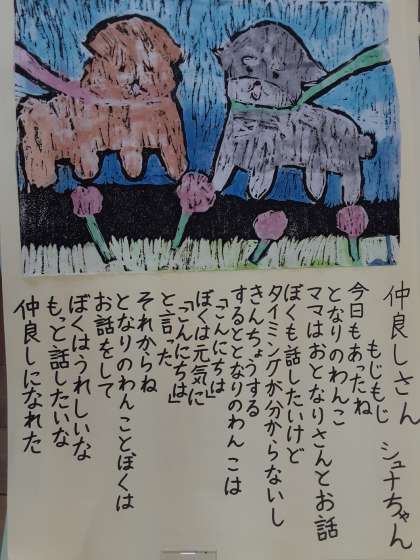 仲良しさん
もじもじ シュナちゃん
今日もあったね
となりのわんこ
ママはおとなりさんとお話
ぼくも話したいけど
タイミングが分からないし
きんちょうする
するととなりのわんこは
「こんにちは」
ぼくは元気に
「こんにちは」
と言った
それからね
となりのわんことぼくは
お話をして
ぼくはうれしいな
もっと話したいな
仲良しになれた